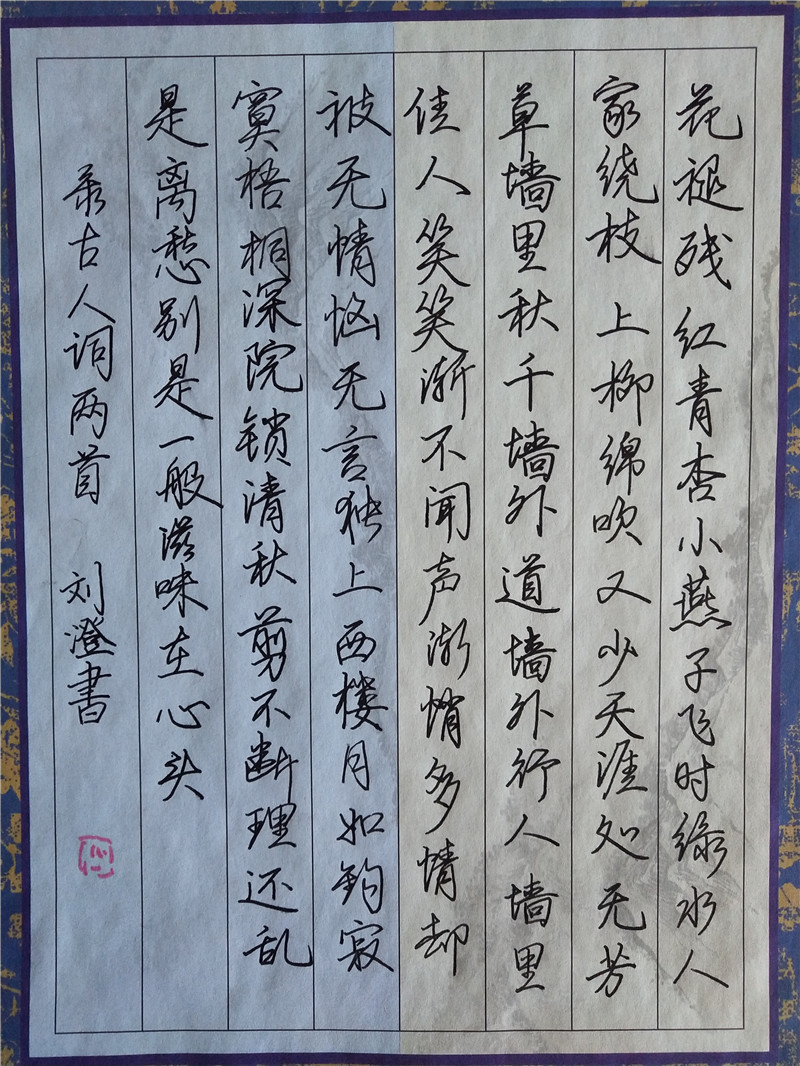 花褪残红青杏小燕子飞时绿水人
家绕枝上柳绵吹又少天涯处无芳
草墙里秋千墙外道墙外行人墙里
佳人笑笑渐不闻声渐悄多情却
被无情恼无言独上西楼月如钩寂
寞梧桐深院锁清秋剪不断理还乱
是离愁别是一般滋味在心头
录古人词两首 刘澄書